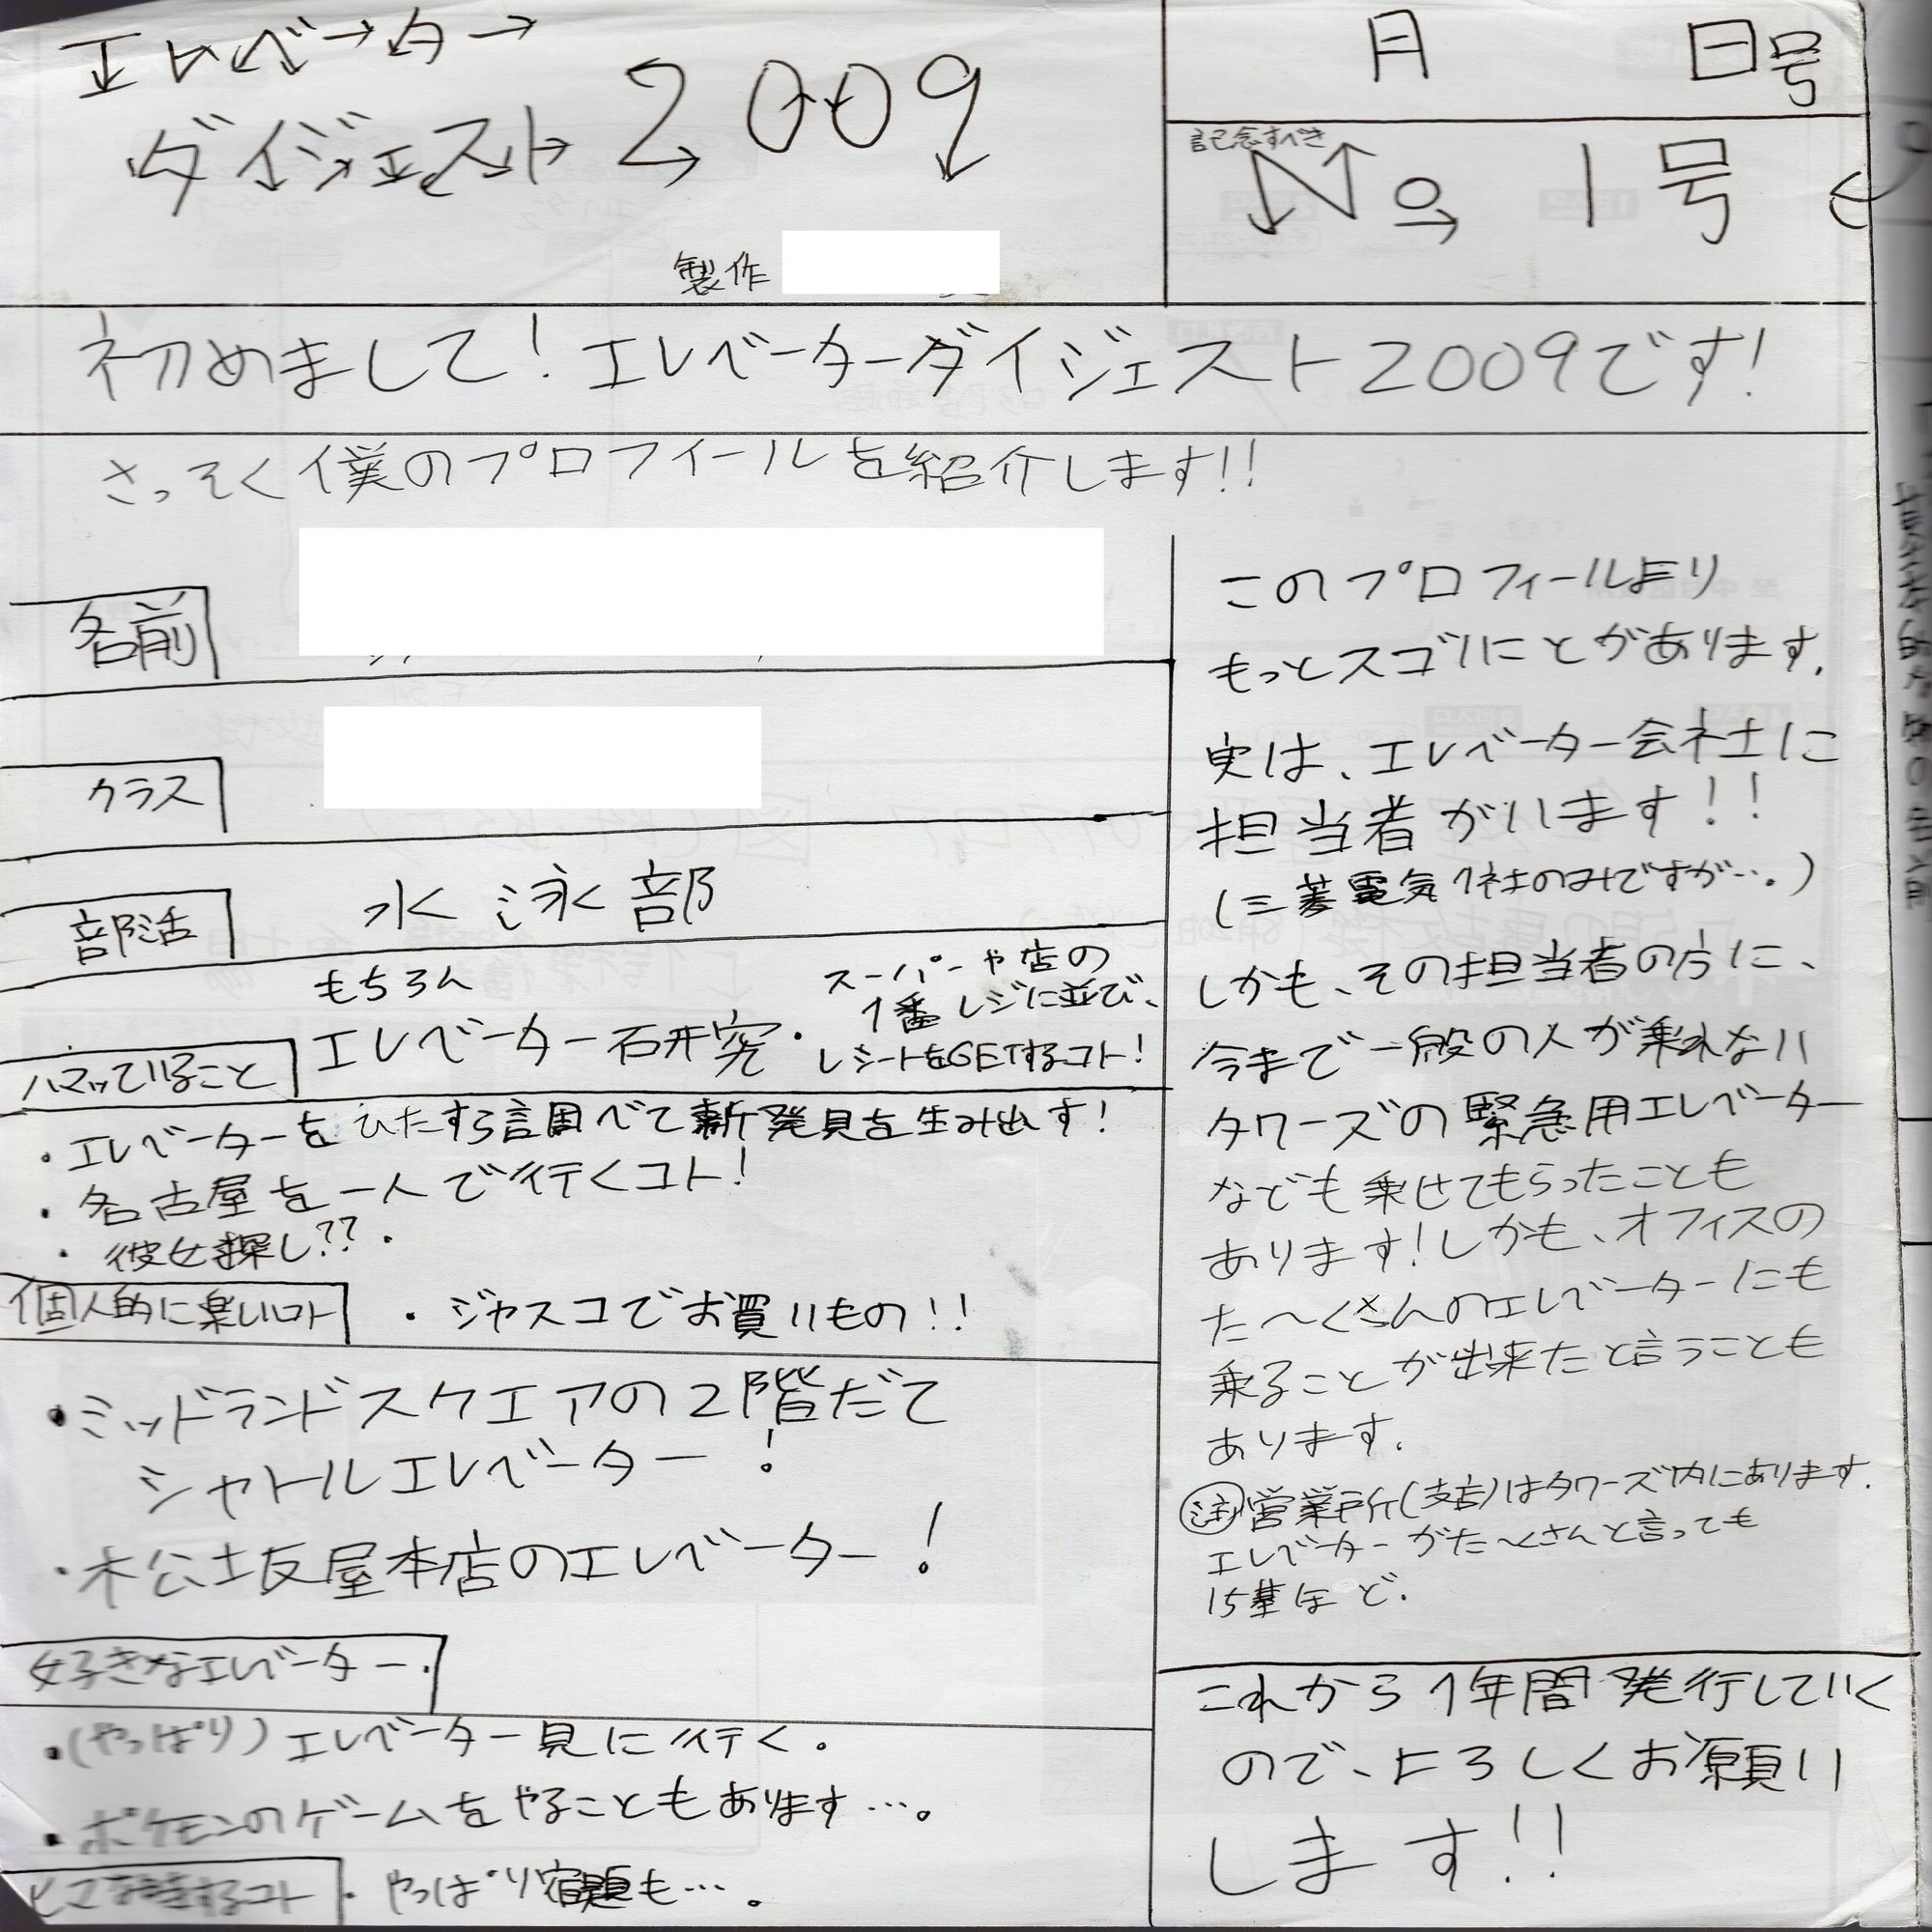 エレベーター
ダイジェスト2009
製作
月 日号
記念すべき
No 1号
初めまして!エレベーターダイジェスト2009です!
さっそく僕のプロフィールを紹介します!!
名前
クラス
部活
水泳部
ハマっていること
もちろん
エレベーター研究・
スーパーや店の
1番レジに並び、
レシートをGETするコト!
・エレベーターをひたすら調べて新発見を生み出す!
・名古屋を一人で行くコト!
・彼女探し??.
個人的に楽しいコト
・ジャスコでお買いもの!!
・ミッドランドスクエアの2階だて
シャトルエレベーター!
・松坂屋本店のエレベーター!
好きなエレベーター.
・(やっぱり)エレベーター見に行く。
・ポケモンのゲームをやることもあります…。
ヒマな時するコト
・やっぱり宿題も…。
このプロフィールより
もっとスゴいことがあります.
実は、エレベーター会社に
担当者がいます!!
(三菱電気1社のみですが…。)
しかも、その担当者の方に、
今まで一般の人が乗れない
タワーズの緊急用エレベーター
なども乗せてもらったことも
あります!しかも、オフィスの
た〜くさんのエレベーターにも
乗ることが出来たと言うことも
あります.
注営業所(支店)はタワーズ内にあります.
エレベーターがた〜くさんと言っても
15基ほど.
これから1年間発行していく
ので、よろしくお願い
します!!